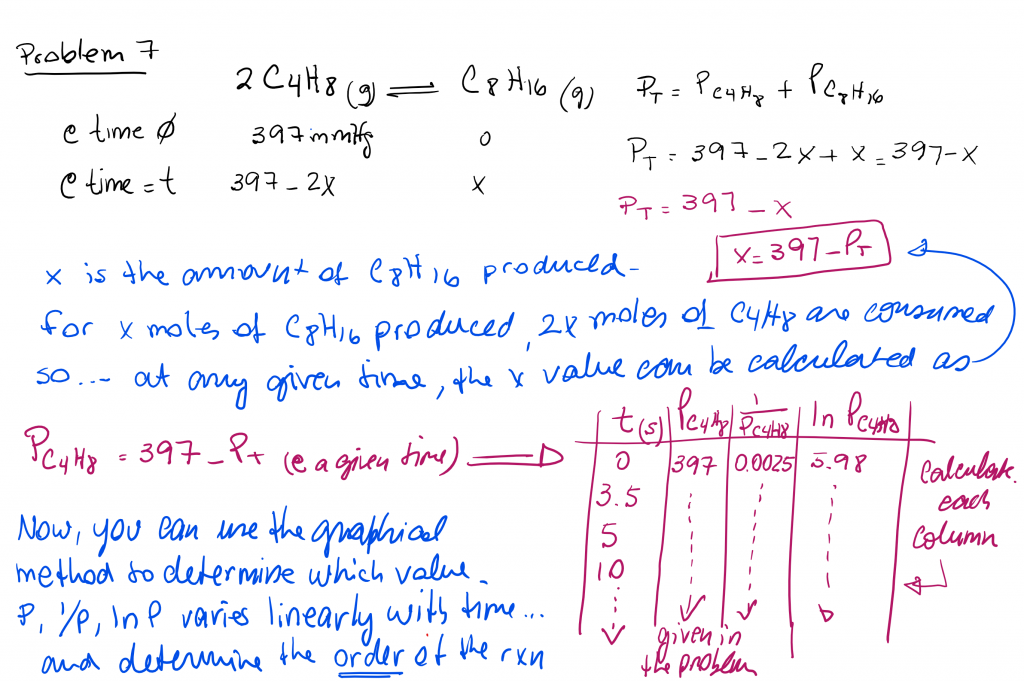 Problem 7
2 C4H8 (g) ⇌ C8H16 (g)
PT = PC4H8 + PC8H16
@ time Ø 397 mmHg 0
PT = 397 - 2X + X = 397 - X
@ time = t 397 - 2X X
PT = 397 - X
X = 397 - PT
x is the amount of C8H16 produced -
for x moles of C8H16 produced, 2x moles of C4H8 are consumed
so... at any given time, the x value can be calculated as
PC4H8 = 397 - Pt (@ a given time)
t(s) PC4H8 1/PC4H8 ln PC4H8
0 397 0.0025 5.98
3.5
5
10
Calculate
each
Column
given in
the problem
Now, you can use the graphical
method to determine which value
P, 1/P, ln P varies linearly with time...
and determine the order of the rxn